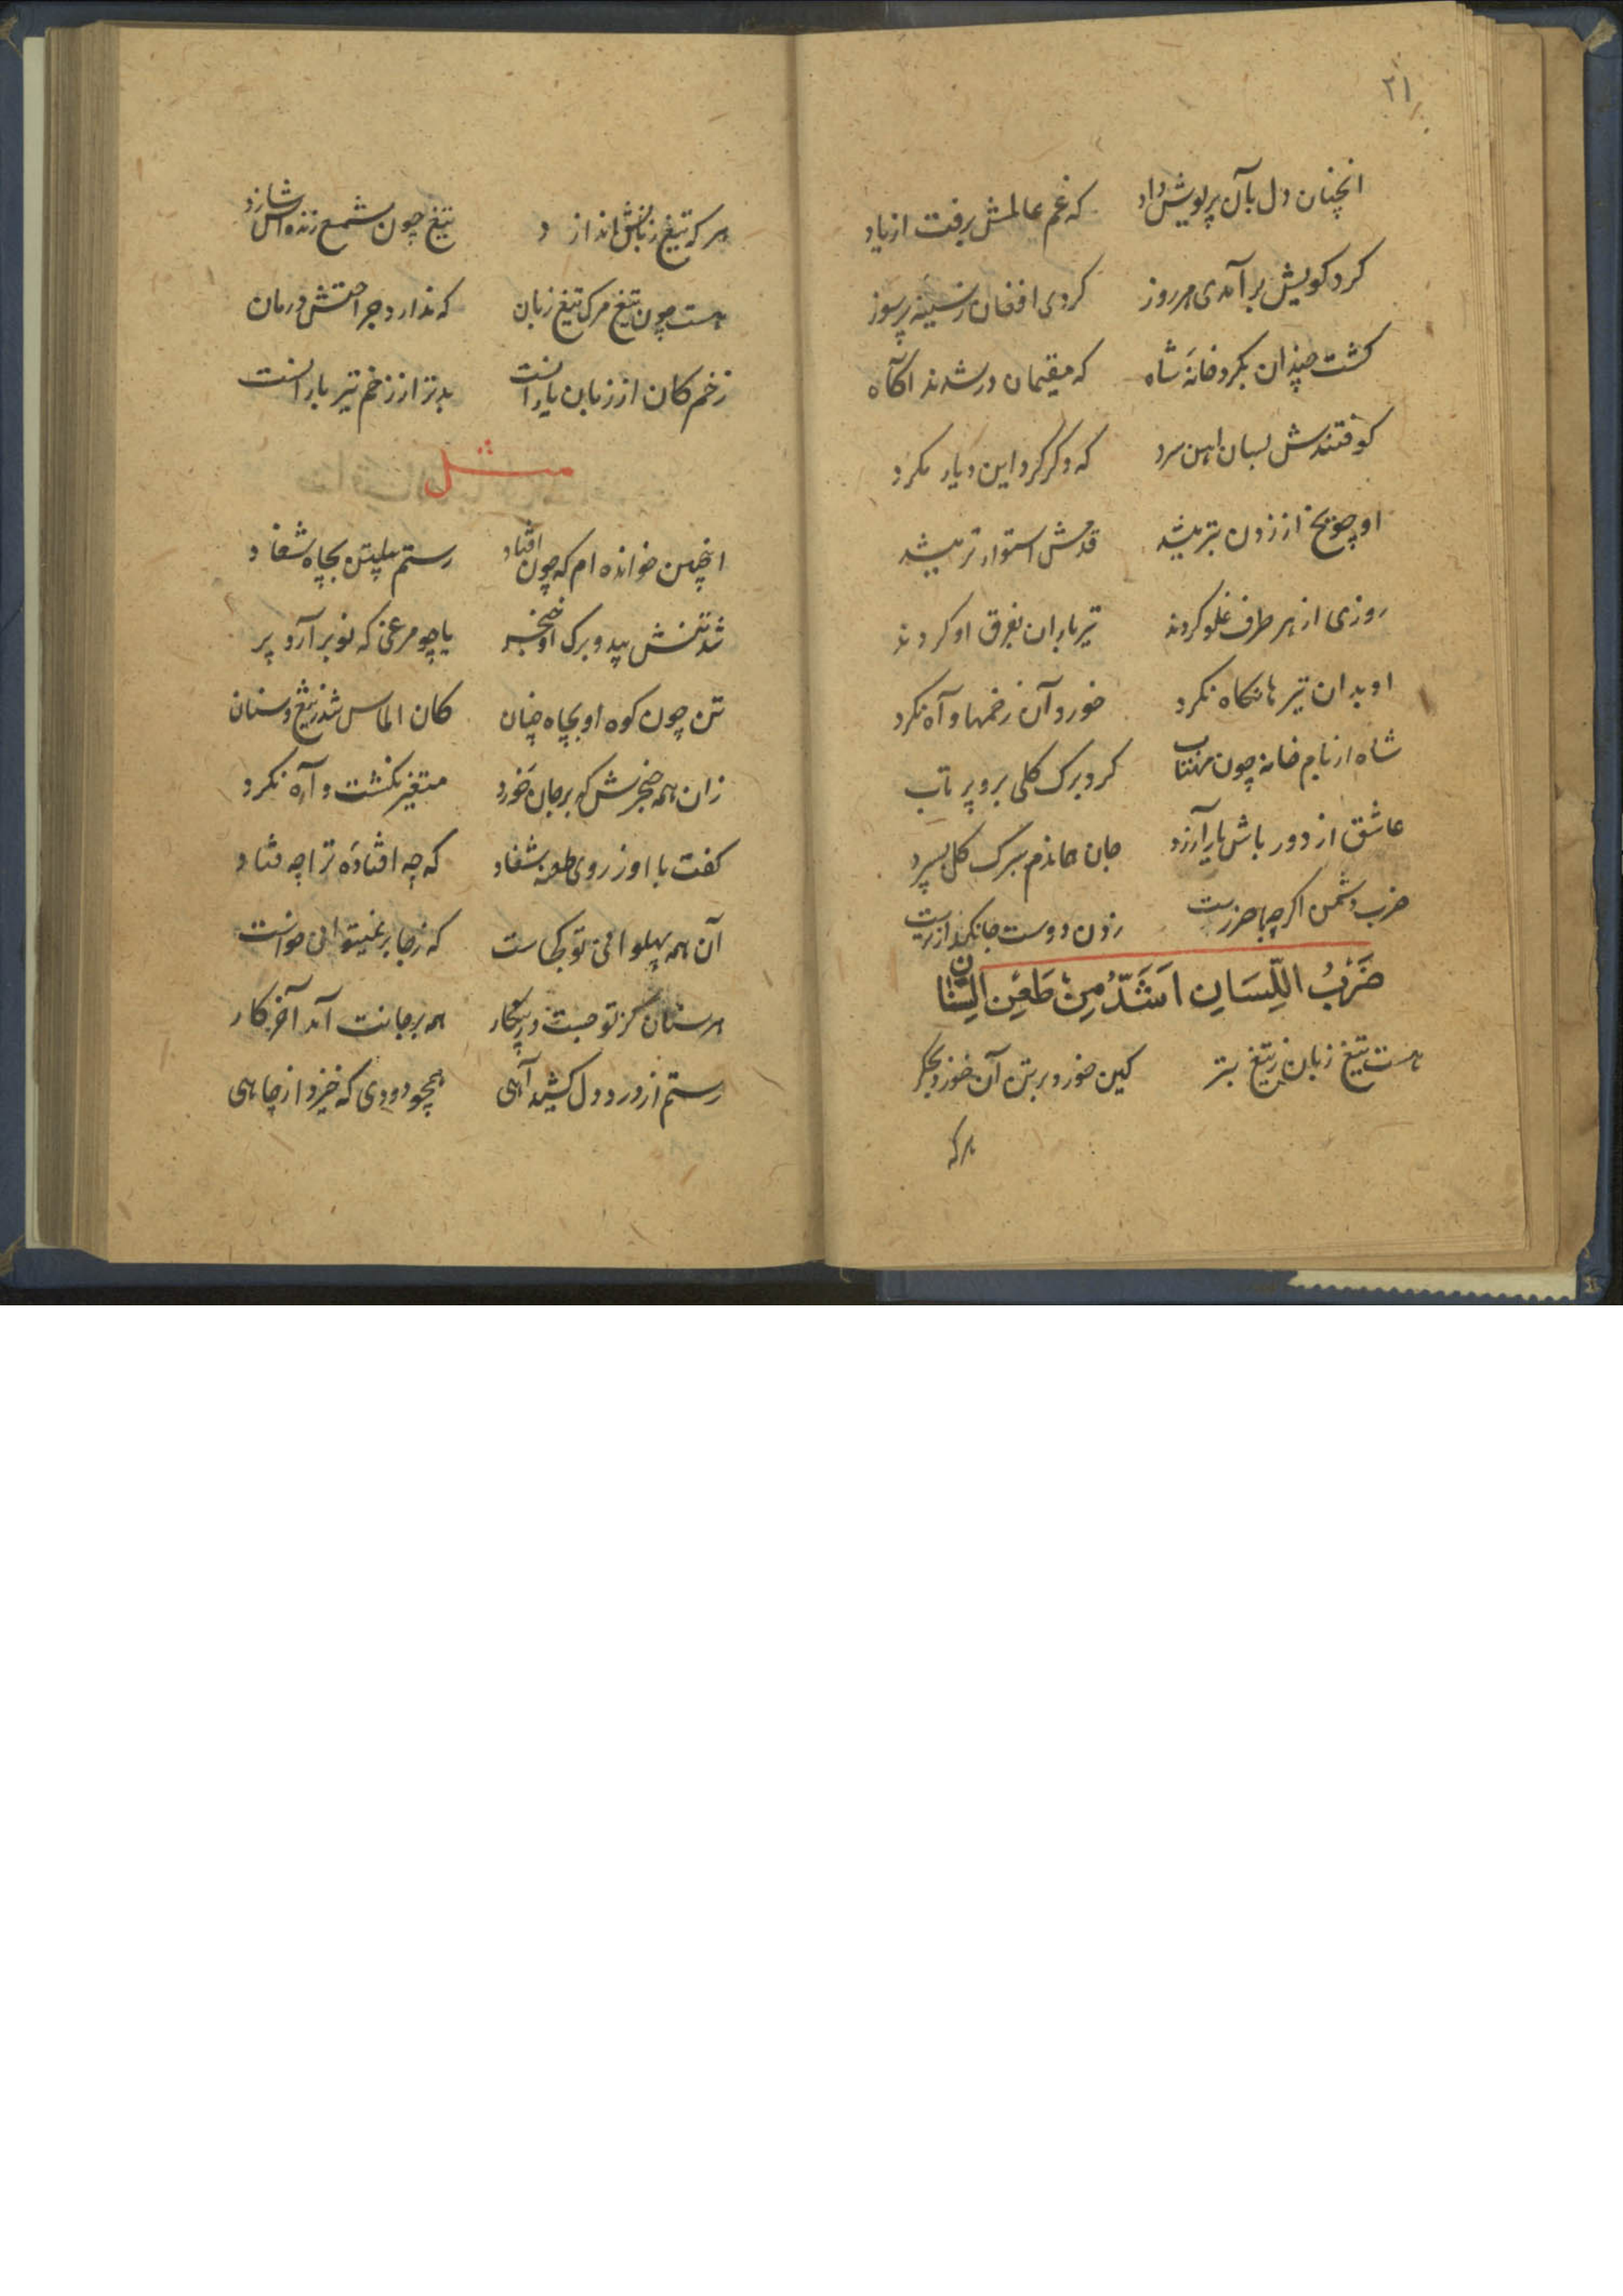 ۲۱
انچنان دل بآن پریوش داد که غم عالمش برفت از یاد
کرد کویش برآمدی هر روز کردی افغان ز سینه پرسوز
کشت چندان بکرد خانهٔ شاه که مقیمان در شدند اکآه
کوفتندش بسان اهن سرد که دکر کرد این دیار مکرد
او چو میخ از زدن بتر میشد قدمش استوار تر میشد
روزی از هر طرف غلو کردند تیر باران بفرق او کردند
او بدان تیرها نکاه نکرد خورد آن زخمها و آه نکرد
شاه از بام خانه چون مهتاب کرد برک کلی برو پرتاب
عاشق از دور باش یار آزرد جان هماندم ببرک کل بسپرد
ضرب دشمن اکرچه با ضررست زدن دوست جانکدازترست
ضَرْبُ اللِّسَانِ اَشَدُّ مِنْ طَعْنِ السِّنَانِ
هست تیغ زبان ز تیغ بتر کین خورد بر تن آن خورد بجکر
هرکه
هر که تیغ زبانش اندازد تیغ چون شمع زنده‌اش سازد
هست چون تیغ مرک تیغ زبان که ندارد جراحتش درمان
زخم کان از زبان یارانست بدتر از زخم تیر بارانست
مثل
اینچنین خوانده ام که چون افتاد رستم پیلتن بچاه شغاد
شد تنش بید و برک او خنجر یا چو مرغی که نو برآرد پر
تن چون کوه او بچاه چنان کان الماس شد ز تیغ و سنان
زان همه خنجرش که بر جان خورد متغیر نکشت و آه نکرد
کفت با او ز روی طعنه شغاد که چه افتاده ترا چه فتاد
آن همه پهلوانی تو کجاست که ز جا بر نمیتوانی خواست
هر سنان کز تو جست در پیکار همه بر جانت آمد آخر کار
رستم از درد دل کشید آهی همچو دودی که خیزد از چاهی